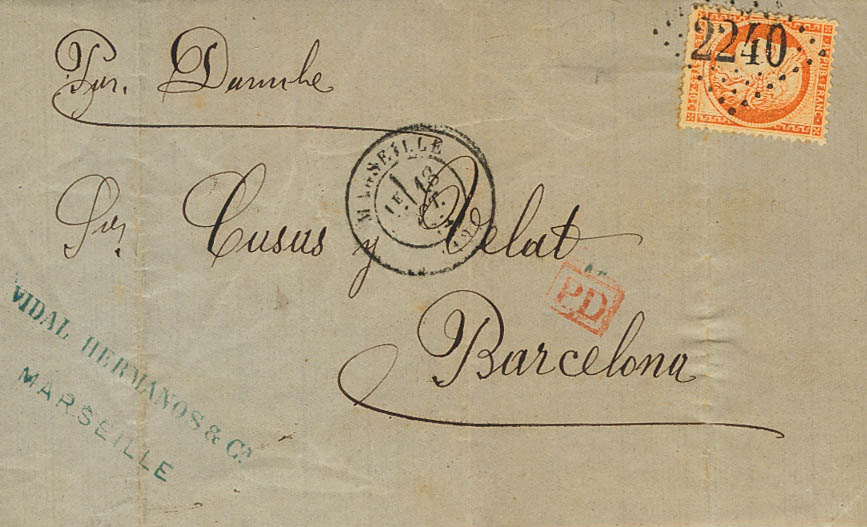 2240
REPUB FRANC
Por. Danube
MARSEILLE
1E 18
Srs Casas y Velat
PD
Barcelona
VIDAL HERMANOS & Cª
MARSEILLE